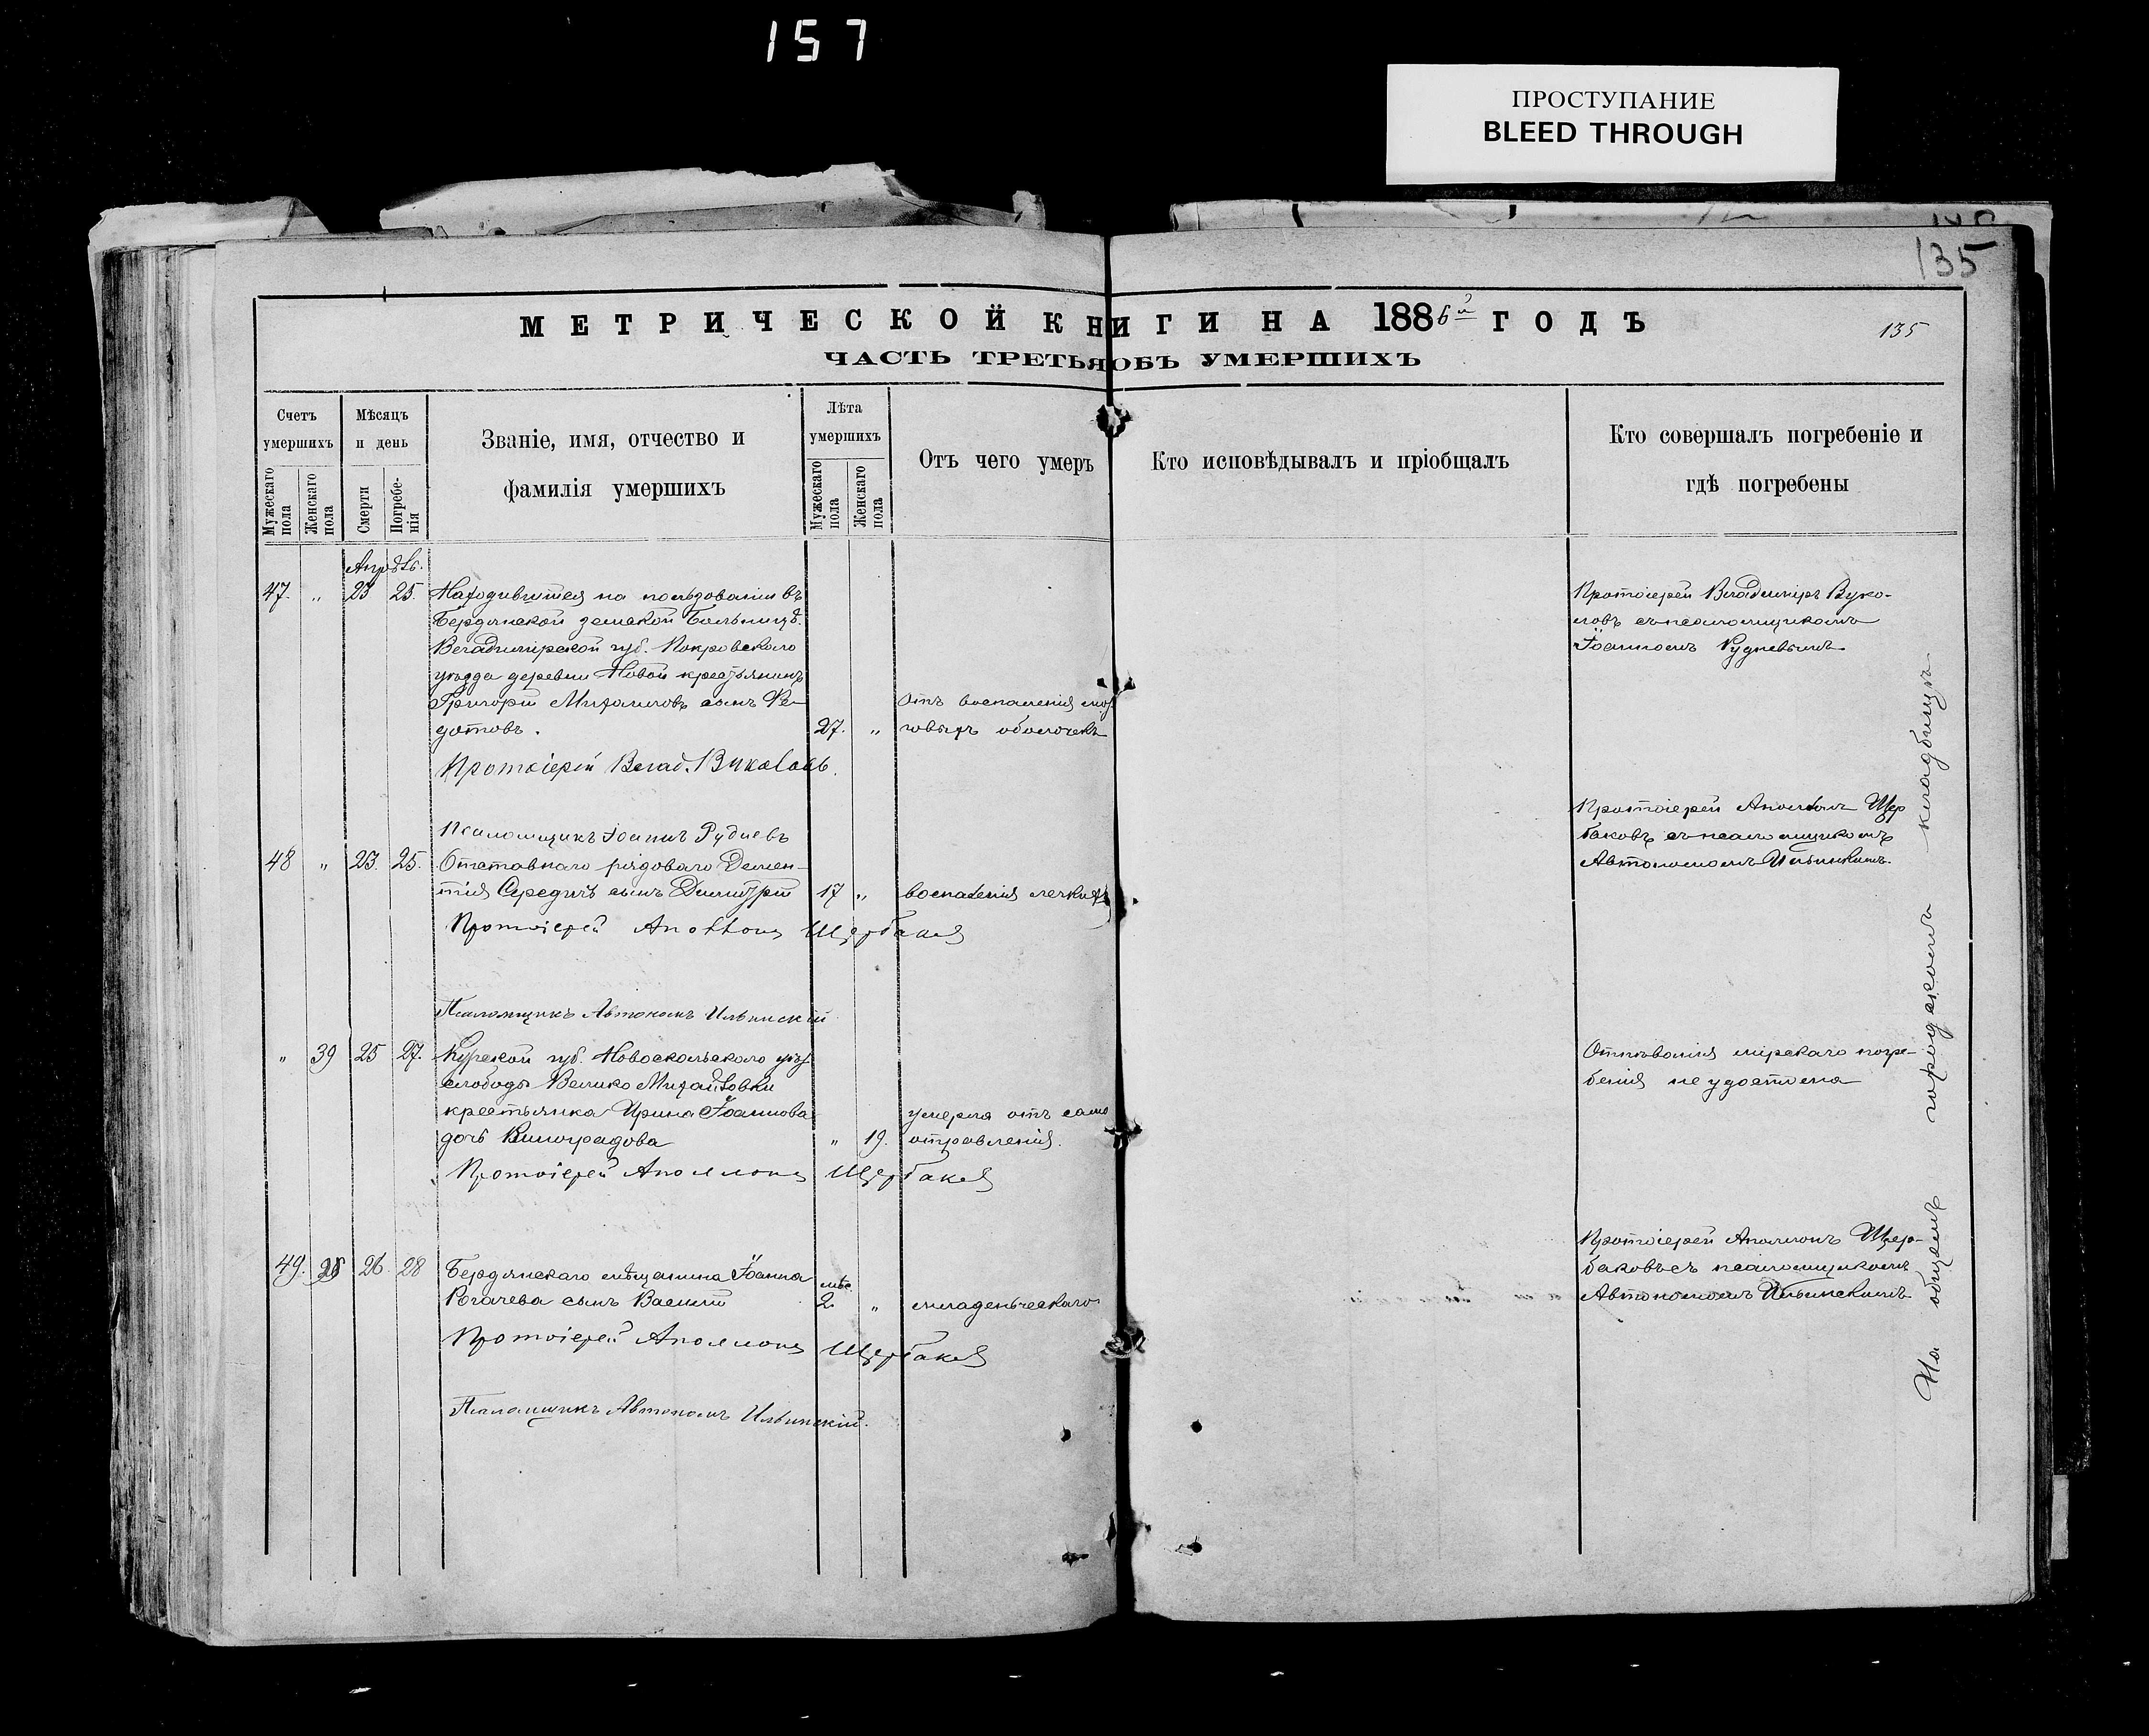 157
ПРОСТУПАНИЕ
BLEED THROUGH
135
МЕТРИЧЕСКОЙ КНИГИ НА 1886й ГОДЪ
135
ЧАСТЬ ТРЕТЬЯ ОБЪ УМЕРШИХЪ
Счетъ умершихъ
Мужескаго пола
Женскаго пола
Мѣсяцъ и день
Смерти
Погребе-
нія
Званіе, имя, отчество и
фамилія умершихъ
Лѣта умершихъ
Мужескаго пола
Женскаго пола
Отъ чего умеръ
Кто исповѣдывалъ и пріобщалъ
Кто совершалъ погребеніе и
гдѣ погребены
Апрѣль.
47. „ 23 25. Находившійся на пользованіи въ
Бердянской земской больницѣ.
Владимірской губ. Покровскаго
уѣзда деревни Новой крестьянинъ
Григорій Михаиловъ сынъ Ѳе-
дотовъ.
27. „
Отъ воспаленія моз-
говыхъ оболочекъ
Протоіерей Владиміръ Вуко-
ловъ съ псаломщикомъ
Іоанномъ Рудневымъ
Протоіерей Влад. Вуколовъ.
Псаломщикъ Іоаннъ Рудневъ
48 „ 23. 25. Отставнаго рядоваго Демен-
тія Середи сынъ Димитрій
17 „
воспаленія легкихъ
Протоіерей Аполлонъ Щер
баковъ съ псаломщикомъ
Автономомъ Ильинскимъ.
Протоіерей Аполлонъ Щербаковъ
Псаломщикъ Автономъ Ильинскій
„ 39 25 27. Курской губ. Новооскольскаго уѣз.
слободы Велико Михайловки
крестьянка Ирина Іоаннова
дочь Виноградова
„ 19.
умерла отъ само
отравленія.
Отпѣванія мірскаго погре-
бенія не удостоена
Протоіерей Аполлонъ Щербаковъ
49. 26. 28 Бердянскаго мѣщанина Іоанна
Рогачева сынъ Василій
мѣс.
2. „
младенческаго
Протоіерей Аполлонъ Щер-
баковъ съ псаломщикомъ
Автономомъ Ильинскимъ
Протоіерей Аполлонъ Щербаковъ
Псаломщикъ Автономъ Ильинскій.
На общемъ городскомъ кладбищѣ